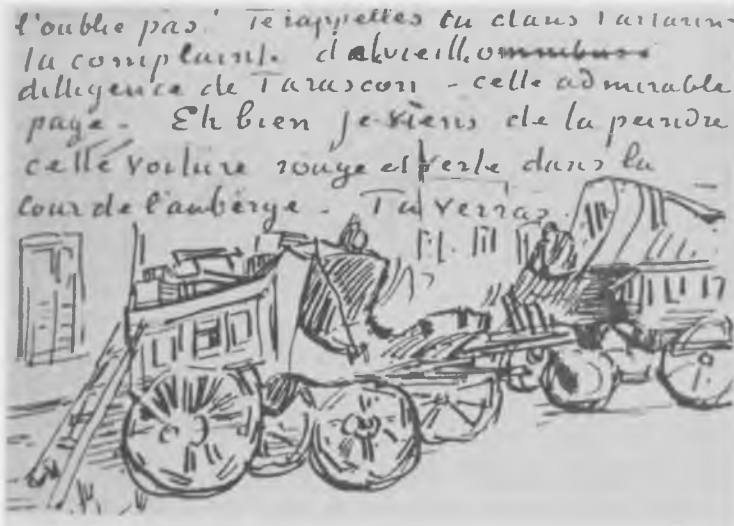 l'oublie pas. Te rappelles tu dans Tartarin
la complainte de la vieille
dilligence de Tarascon - cette admirable
page. Eh bien je viens de la peindre
cette voiture rouge et verte dans la
cour de l'auberge. Tu verras.